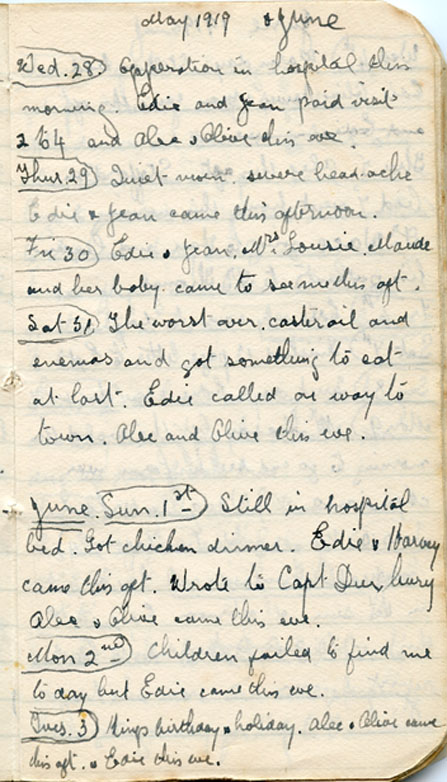 May 1919 & June
Wed. 28 Opperation in hospital this
morning. Edie and Jean paid visit
2 to 4 and Alec & Olive this eve.
Thur. 29 Quiet morn. severe head-ache
Edie & Jean came this afternoon.
Fri 30 Edie & Jean, Mrs. Lousie, Maude
and her baby came to see me this aft.
Sat 31 The worst over. caster oil and
enemas and got something to eat
at last. Edie called on way to
town. Alec and Olive this eve.
June. Sun. 1st Still in hospital
bed. Got chicken dinner. Edie & Harvey
came this aft. Wrote to Capt
Alec & Olive came this eve.
Mon 2nd Children failed to find me
to day but Edie came this eve.
Tues. 3 Kings birthday & holiday. Alec & Olive came
this aft. & Edie this eve.